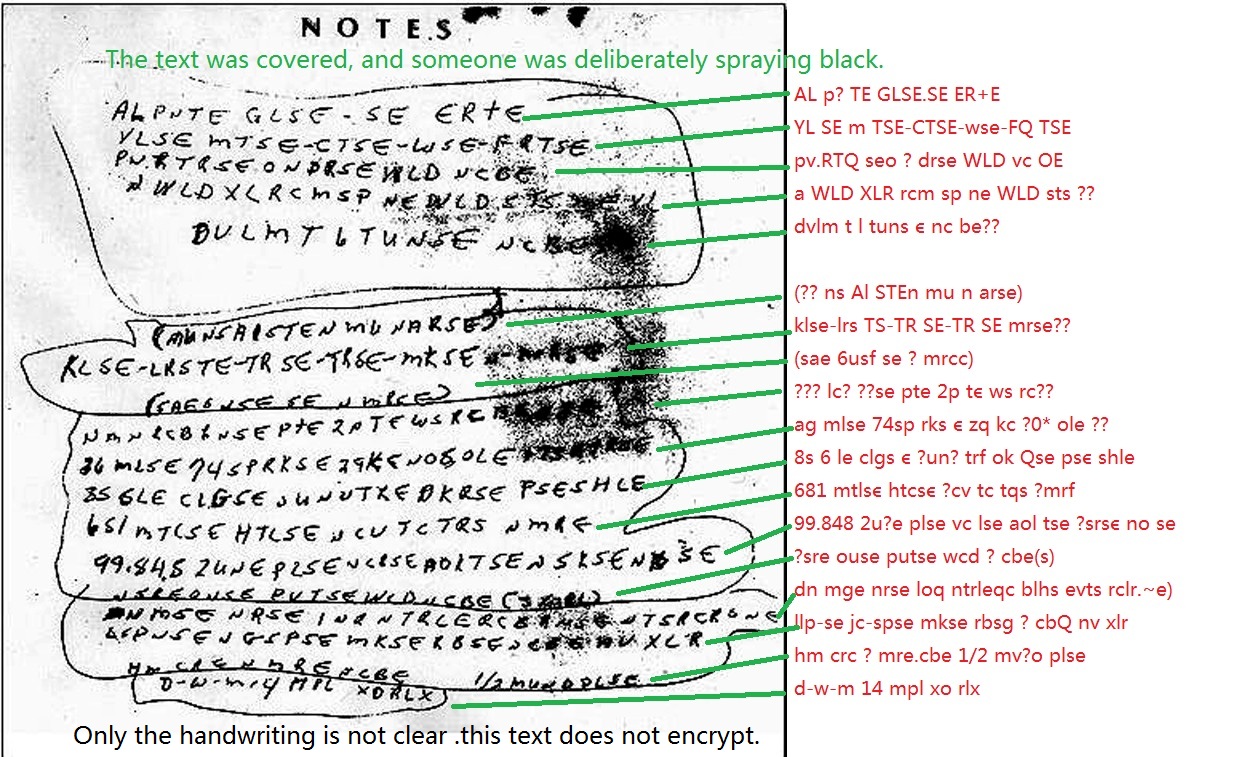 NOTES
The text was covered, and someone was deliberately spraying black.
ALPNTE GLSE-.SE ERTE
VLSE MTSE-CTSE-WSE-FRTSE
PNRTRSEONDRSEWLD NCBE
NWLDXLRCMSP NEWLDSTS
DULMT6TUNSE NCBE
(MUNSAISTEN MU NARSE)
KLSE-LRSTE-TRSE-TRSE-MKSE
(SAE6NSE SE N MRCE)
NMNRCBRNSEPTE2PTEWSRC
36MLSE 74SPRKSE29KENOSOLE
35GLE CLGSE UNUTXE DKRSE PSESHLE
651MTCSE HTLSE NCUTCTRS NMRE
99.84S 2UNEPLSE NCRSEAOLTSENSKSEN SE
NSREONSE PUTSEWLDNCBE
NMSE NRSE INRNTRLERC NTSRCRSNE
NGSPSE MKSERBSEN XLR
NMRENCBE 1/2MUNDDLSE
D-W-M-14 MPL XDRLX
Only the handwriting is not clear .this text does not encrypt.
AL p? TE GLSE.SE ER+E
YL SE m TSE-CTSE-wse-FQ TSE
pv.RTQ seo ? drse WLD vc OE
a WLD XLR rcm sp ne WLD sts ??
dvlm t l tuns є nc be??
(?? ns Al STEn mu n arse)
klse-lrs TS-TR SE-TR SE mrse??
(sae 6usf se ? mrcc)
??? lc? ??se pte 2p tє ws rc??
ag mlse 74sp rks є zq kc ?0* ole ??
8s 6 le clgs є ?un? trf ok Qse psє shle
681 mtlsє htcsє ?cv tc tqs ?mrf
99.848 2u?e plse vc lse aol tse ?srsє no se
?sre ouse putse wcd ? cbe(s)
dn mge nrse loq ntrleqc blhs evts rclr.~e)
llp-se jc-spse mkse rbsg ? cbQ nv xlr
hm crc ? mre.cbe 1/2 mv?o plse
d-w-m 14 mpl xo rlx